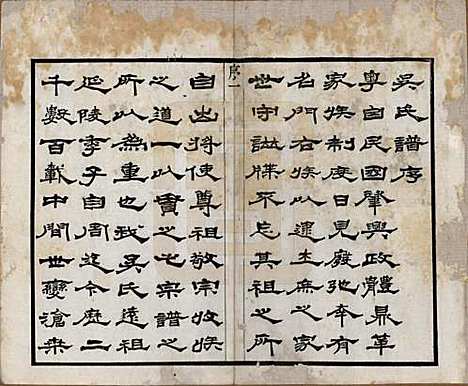 吳氏譜序
粵自民國肇興政體鼎革
家族制度日見廢弛本有
名門右族以逮士庶之家
世守譜牒不忘其祖之所
序一
自出將使尊祖敬宗收族
之道一以貫之也宗譜之
所以為重也我吳氏遠祖
延陵季子自周迄今歷二
千數百載中間世變滄桑